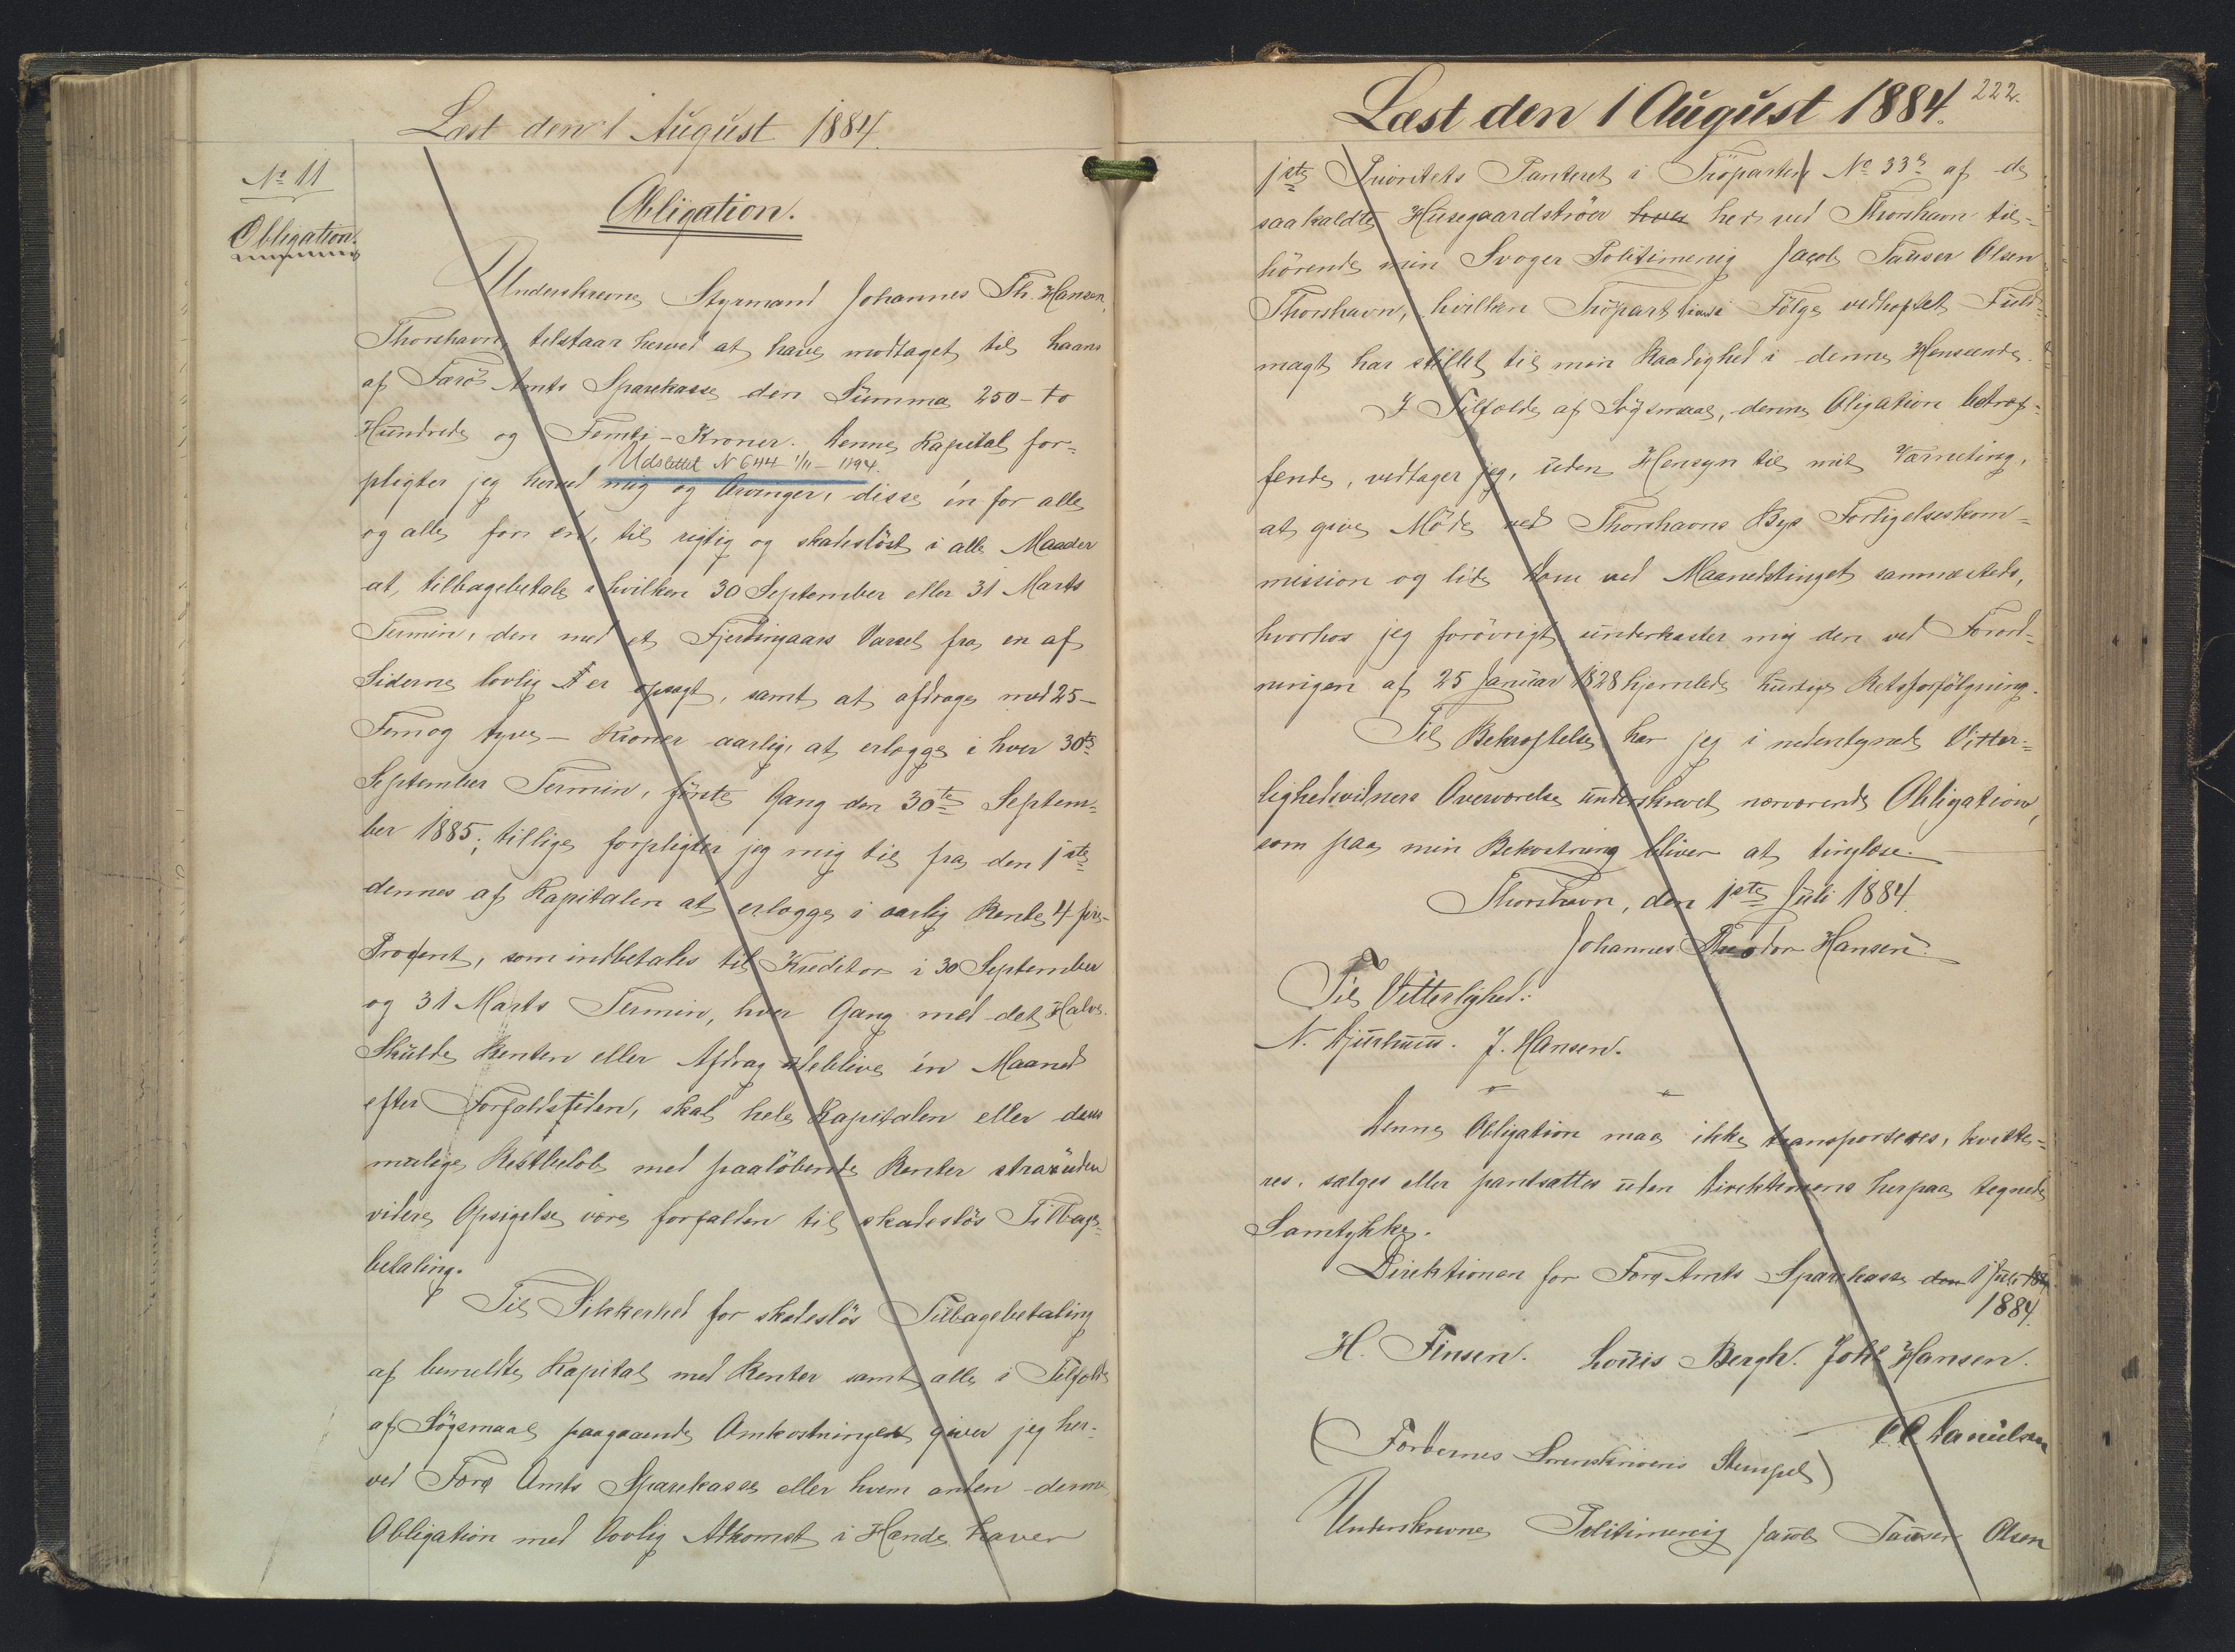 Læst den 1 August 1884.
No 11
Obligation.
Obligation.
Underskrevne Styrmand Johannes Th. Hansen,
Thorshavn, tilstaar herved at have modtaget til Laans
af Færø Amts Sparekasse den Summa 250 – to
Hundrede og Femti – Kroner. Denne Kapital for-
Udslettet N 644 1/11 – 1894.
pligter jeg herved mig og Arvinger, disse én for alle
og alle for én, til rigtig og skadesløst i alle Maader
at tilbagebetale i hvilken 30 September eller 31 Marts
Termin, den med et Fjerdingaars Varsel fra en af
Siderne lovlig er opsagt, samt at afdrage med 25 –
Fem og tyve – Kroner aarlig, at erlægge i hver 30te
September Termin, første Gang den 30te Septem-
ber 1885; tillige forpligter jeg mig til fra den 1ste
dennes af Kapitalen at erlægge i aarlig Rente 4 fire
Procent, som indbetales til Kreditor i 30 September
og 31 Marts Termin, hver Gang med det Halve.
Skulde Renten eller Afdrag udeblive én Maaned
efter Forfaldstiden, skal hele Kapitalen eller dens
mulige Restbeløb med paaløbende Renter strax uden
videre Opsigelse være forfalden til skadesløs Tilbage-
betaling.
Til Sikkerhed for skadesløs Tilbagebetaling
af bemeldte Kapital med Renter samt alle i Tilfælde
af Søgsmaal paagaaende Omkostninger giver jeg her-
ved Færø Amts Sparekasse eller hvem anden denne
Obligation med lovlig Adkomst i Hænde haver
Læst den 1 August 1884.
222.
1ste Prioritets Panteret i Trøpart No 33 af de
saakaldte Husegaardstrøer her ved Thorshavn til-
hørende min Svoger Politimenig Jacob Tauser Olsen
Thorshavn, hvilken Trøpart i Følge vedhæftet Fuld-
magt har stillet til min Raadighed i denne Henseende.
I Tilfælde af Søgsmaal, denne Oligation betræf-
fende, vedtager jeg, uden Hensyn til mit Værneting,
at give Møde ved Thorshavns Bys Forligelseskom-
mission og lide Dom ved Maanedstinget sammesteds,
hvorhos jeg forøvrigt underkaster mig den ved Forord-
ningen af 25 Januar 1828 hjemlede hurtige Retsforfølgning.
Til Bekræftelse har jeg i nedentegnede Vitter-
lighedsvidners Overværelse underskrevet nærværende Obligation,
som paa min Bekostning bliver at tinglæse.
Thorshavn, den 1ste Juli 1884.
Johannes Theodor Hansen.
Til Vitterlighed:
N. Djurhuus. J. Hansen.
Denne Obligation maa ikke transporteres, kvitte-
res, sælges eller pantsættes uden Direktionens herpaa tegnede
Samtykke.
Direktionen for Færø Amts Sparekasse den 1 Juli
1884.
H. Finsen. Louis Bergh. Joh. Hansen.
Danielsen
(Færøernes Sorenskriveris Stempel)
Underskrevne Politimenig Jacob Tauser Olsen